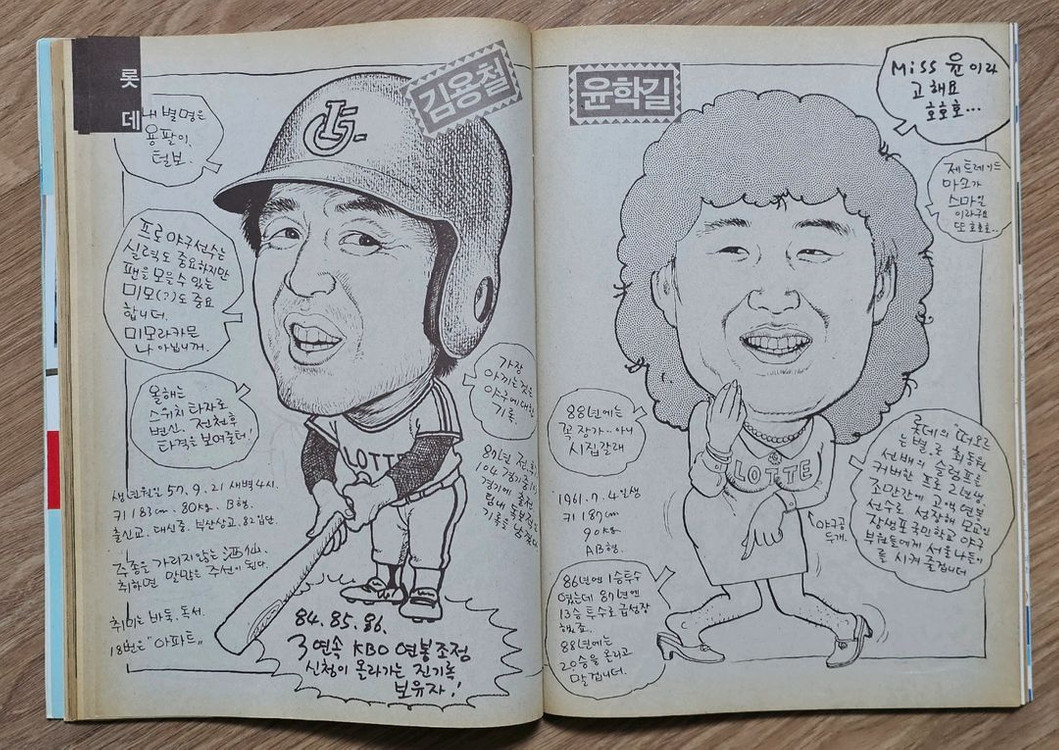 롯
데
김용철
내 별명은
용팔이,
털보.
프로야구선수는
실력도 중요하지만
팬을 모을 수 있는
미모(?)도 중요
합니더.
미모라카믄
나 아닙니꺼.
올해는
스위치 타자로
변신. 전천후
타격을 보여줄터!
가장
아끼는 것은
야구에 대한
기록.
87년 전
104 경기중
경기에 출전
팀내
기록을 남겼다.
생년월일 57. 9. 21 새벽 4시.
키 183cm. 80kg. B형.
출신교. 대신중. 부산상고. 82 입단.
주종을 가리지않는 酒仙.
취하면 말많은 주선이 된다.
취미는 바둑, 독서.
18번은 "아파트"
84. 85. 86.
3연속 KBO 연봉조정
신청이 올라가는 진기록
보유자!
LOTTE
윤학길
Miss 윤이라
고 해요
호호호...
제 트레이드
마크가
스마일
이라구요
또 호호호..
88년에는
꼭 장가.. 아니
시집갈래
1961. 7. 4일생
키 187cm
90kg
AB형.
86년엔 1승투수
였는데 87년엔
13승 투수로 급성장
했죠.
88년에는
20승을 올리고
말겁니더.
LOTTE
야구공
두개.
롯데의 "떠오르
는 별"로 최동원
선배의 슬럼프를
커버한 프로 2년생
조만간에 고액 연봉
선수로 성장해 모교인
장생포국민학교 야구
부원들에게 서울나들이
를 시켜 줄겁니더